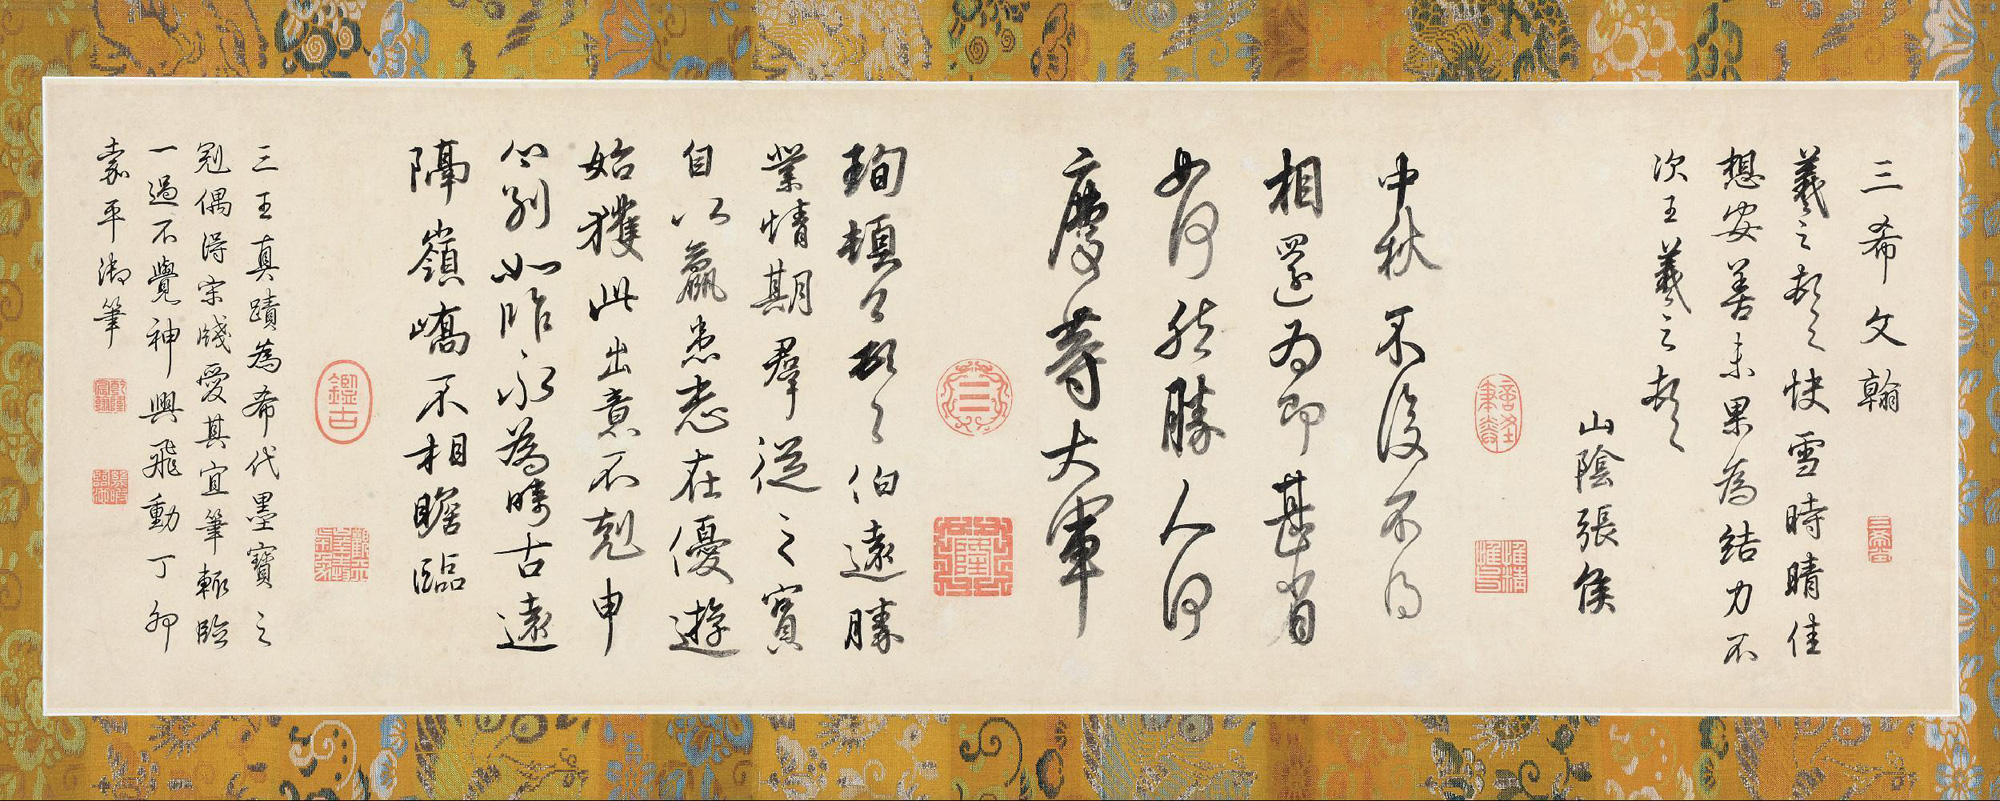 三希文翰
羲之頓首快雪時晴佳
想安善未果為結力不
次王羲之頓首
山陰張侯
中秋不復不得
相還為即甚省
如何然勝人何
慶等大軍
珣頓首頓首伯遠勝
業情期羣從之寶
自以羸患志在優遊
始獲此出意不剋申
分別如昨永為疇古遠
隔嶺嶠不相瞻臨
三王真蹟為希代墨寶之
冠偶得宋牋愛其宜筆輒臨
一過不覺神興飛動丁卯
嘉平御筆
三希堂
乾隆
鑑古